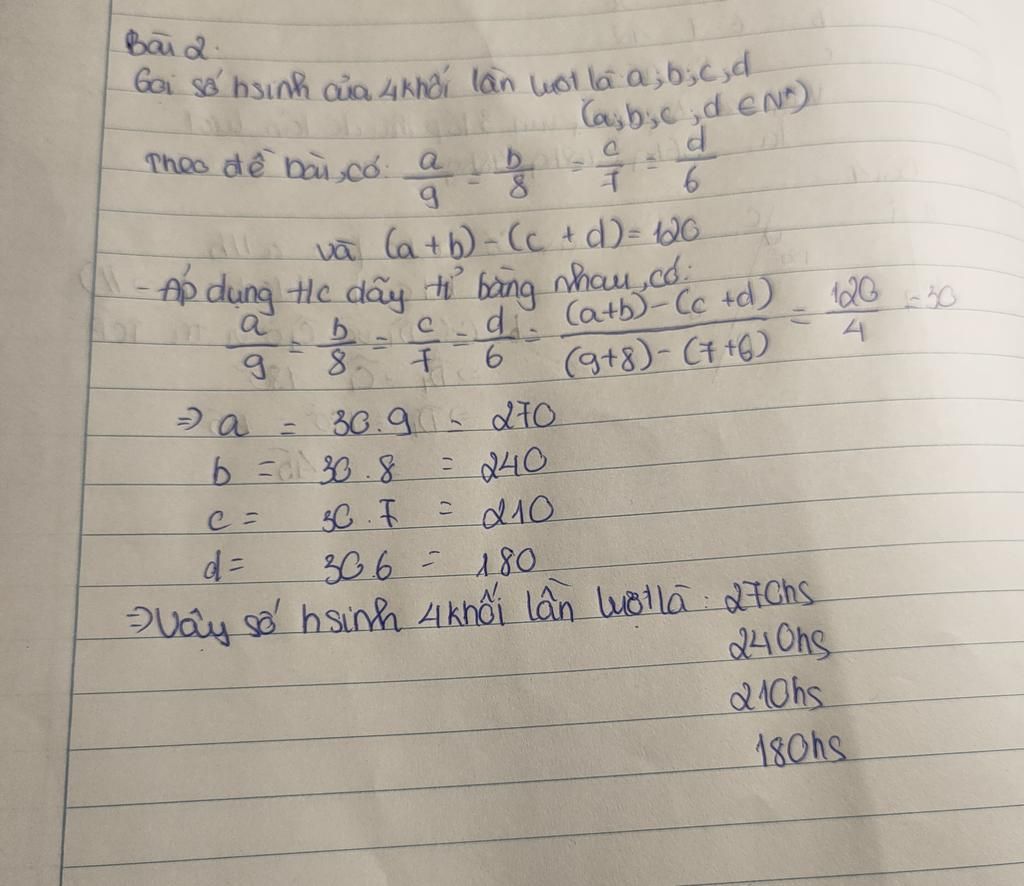 Bài 2.
Gọi số hsinh của 4 khối lần lượt là a;b;c,d
(a;b;c;d ∈ N*)
Theo đề bài, có: a/9 = b/8 = c/7 = d/6
và (a+b)-(c+d)=120
- Áp dụng t/c dãy tỉ bằng nhau, có:
a/9 = b/8 = c/7 = d/6 = (a+b)-(c+d)/(9+8)-(7+6) = 120/4 = 30
⇒ a = 30.9 = 270
b = 30.8 = 240
c = 30.7 = 210
d = 30.6 = 180
⇒ Vậy số hsinh 4 khối lần lượt là: 270hs
240hs
210hs
180hs